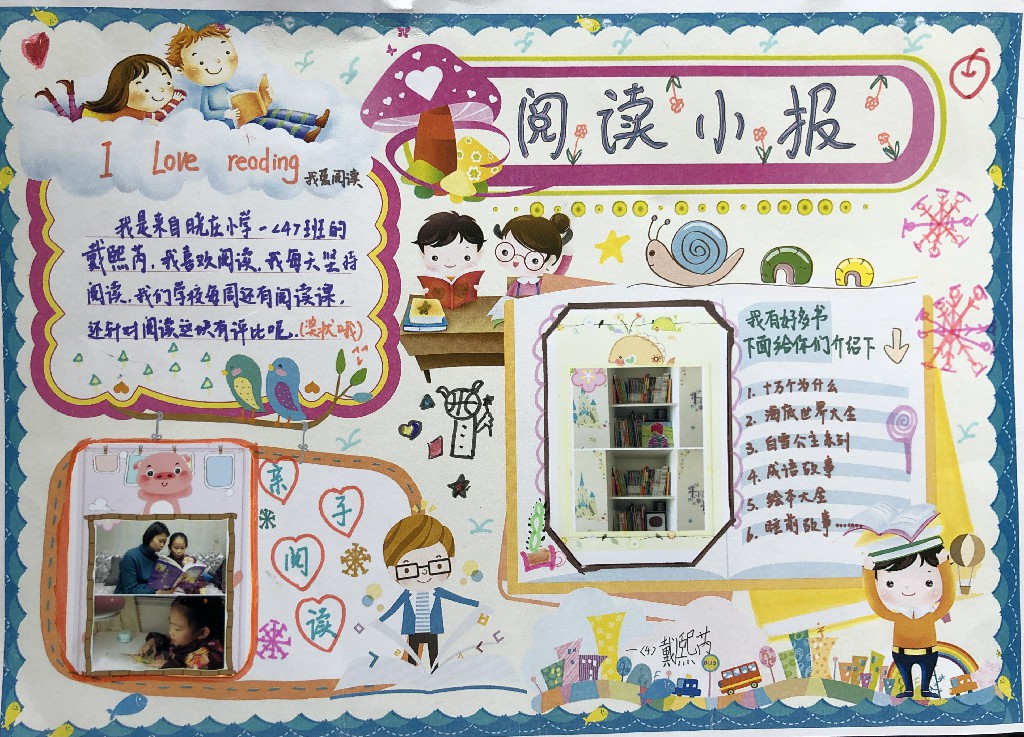 阅读小报
I Love reading
我爱阅读
我是来自晓庄小学一<4>班的
戴熙芮，我喜欢阅读，我每天坚持
阅读，我们学校每周还有阅读课，
还针对阅读这块有评比呢.(奖状哦)
我有好多书
下面给你们介绍下
1. 十万个为什么
2. 海底世界大全
3. 白雪公主系列
4. 成语故事
5. 绘本大全
6. 睡前故事……
亲
子
阅
读
一<4> 戴熙芮
BUS